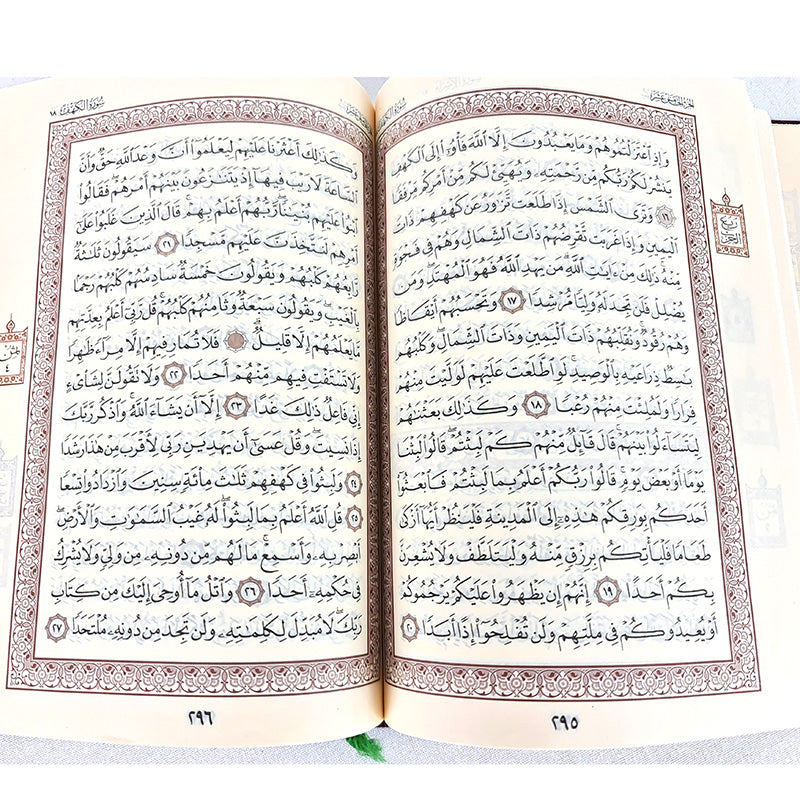 الجزء الخامس عشر
وَإِذِ ٱعۡتَزَلۡتُمُوهُمۡ وَمَا يَعۡبُدُونَ إِلَّا ٱللَّهَ فَأۡوُۥٓاْ إِلَى ٱلۡكَهۡفِ
يَنشُرۡ لَكُمۡ رَبُّكُم مِّن رَّحۡمَتِهِۦ وَيُهَيِّئۡ لَكُم مِّنۡ أَمۡرِكُم مِّرۡفَقٗا
١٦ ۞ وَتَرَى ٱلشَّمۡسَ إِذَا طَلَعَت تَّزَٰوَرُ عَن كَهۡفِهِمۡ ذَاتَ
ٱلۡيَمِينِ وَإِذَا غَرَبَت تَّقۡرِضُهُمۡ ذَاتَ ٱلشِّمَالِ وَهُمۡ فِي فَجۡوَةٖ
مِّنۡهُۚ ذَٰلِكَ مِنۡ ءَايَٰتِ ٱللَّهِۗ مَن يَهۡدِ ٱللَّهُ فَهُوَ ٱلۡمُهۡتَدِۖ وَمَن
يُضۡلِلۡ فَلَن تَجِدَ لَهُۥ وَلِيّٗا مُّرۡشِدٗا ١٧ وَتَحۡسَبُهُمۡ أَيۡقَاظٗا
وَهُمۡ رُقُودٞۚ وَنُقَلِّبُهُمۡ ذَاتَ ٱلۡيَمِينِ وَذَاتَ ٱلشِّمَالِۖ وَكَلۡبُهُم
بَٰسِطٞ ذِرَاعَيۡهِ بِٱلۡوَصِيدِۚ لَوِ ٱطَّلَعۡتَ عَلَيۡهِمۡ لَوَلَّيۡتَ مِنۡهُمۡ
فِرَارٗا وَلَمُلِئۡتَ مِنۡهُمۡ رُعۡبٗا ١٨ وَكَذَٰلِكَ بَعَثۡنَٰهُمۡ
لِيَتَسَآءَلُواْ بَيۡنَهُمۡۚ قَالَ قَآئِلٞ مِّنۡهُمۡ كَمۡ لَبِثۡتُمۡۖ قَالُواْ لَبِثۡنَا
يَوۡمًا أَوۡ بَعۡضَ يَوۡمٖۚ قَالُواْ رَبُّكُمۡ أَعۡلَمُ بِمَا لَبِثۡتُمۡ فَٱبۡعَثُوٓاْ
أَحَدَكُم بِوَرِقِكُمۡ هَٰذِهِۦٓ إِلَى ٱلۡمَدِينَةِ فَلۡيَنظُرۡ أَيُّهَآ أَزۡكَىٰ
طَعَامٗا فَلۡيَأۡتِكُم بِرِزۡقٖ مِّنۡهُ وَلۡيَتَلَطَّفۡ وَلَا يُشۡعِرَنَّ
بِكُمۡ أَحَدًا ١٩ إِنَّهُمۡ إِن يَظۡهَرُواْ عَلَيۡكُمۡ يَرۡجُمُوكُمۡ
أَوۡ يُعِيدُوكُمۡ فِي مِلَّتِهِمۡ وَلَن تُفۡلِحُوٓاْ إِذًا أَبَدٗا ٢٠
ربع
الحزب
٢٩٥
سورة الكهف ١٨
وَكَذَٰلِكَ أَعۡثَرۡنَا عَلَيۡهِمۡ لِيَعۡلَمُوٓاْ أَنَّ وَعۡدَ ٱللَّهِ حَقّٞ وَأَنَّ
ٱلسَّاعَةَ لَا رَيۡبَ فِيهَآ إِذۡ يَتَنَٰزَعُونَ بَيۡنَهُمۡ أَمۡرَهُمۡۖ فَقَالُواْ
ٱبۡنُواْ عَلَيۡهِم بُنۡيَٰنٗاۖ رَّبُّهُمۡ أَعۡلَمُ بِهِمۡۚ قَالَ ٱلَّذِينَ غَلَبُواْ عَلَىٰٓ
أَمۡرِهِمۡ لَنَتَّخِذَنَّ عَلَيۡهِم مَّسۡجِدٗا ٢١ سَيَقُولُونَ ثَلَٰثَةٞ
رَّابِعُهُمۡ كَلۡبُهُمۡ وَيَقُولُونَ خَمۡسَةٞ سَادِسُهُمۡ كَلۡبُهُمۡ رَجۡمَۢا
بِٱلۡغَيۡبِۖ وَيَقُولُونَ سَبۡعَةٞ وَثَامِنُهُمۡ كَلۡبُهُمۡۚ قُل رَّبِّيٓ أَعۡلَمُ بِعِدَّتِهِم
مَّا يَعۡلَمُهُمۡ إِلَّا قَلِيلٞۗ فَلَا تُمَارِ فِيهِمۡ إِلَّا مِرَآءٗ ظَٰهِرٗا
وَلَا تَسۡتَفۡتِ فِيهِم مِّنۡهُمۡ أَحَدٗا ٢٢ وَلَا تَقُولَنَّ لِشَاْيۡءٍ
إِنِّي فَاعِلٞ ذَٰلِكَ غَدًا ٢٣ إِلَّآ أَن يَشَآءَ ٱللَّهُۚ وَٱذۡكُر رَّبَّكَ
إِذَا نَسِيتَ وَقُلۡ عَسَىٰٓ أَن يَهۡدِيَنِ رَبِّي لِأَقۡرَبَ مِنۡ هَٰذَا رَشَدٗا
٢٤ وَلَبِثُواْ فِي كَهۡفِهِمۡ ثَلَٰثَ مِاْئَةٖ سِنِينَ وَٱزۡدَادُواْ تِسۡعٗا
٢٥ قُلِ ٱللَّهُ أَعۡلَمُ بِمَا لَبِثُواْۖ لَهُۥ غَيۡبُ ٱلسَّمَٰوَٰتِ وَٱلۡأَرۡضِۖ
أَبۡصِرۡ بِهِۦ وَأَسۡمِعۡۚ مَا لَهُم مِّن دُونِهِۦ مِن وَلِيّٖ وَلَا يُشۡرِكُ
فِي حُكۡمِهِۦٓ أَحَدٗا ٢٦ وَٱتۡلُ مَآ أُوحِيَ إِلَيۡكَ مِن كِتَابِ
رَبِّكَۖ لَا مُبَدِّلَ لِكَلِمَٰتِهِۦ وَلَن تَجِدَ مِن دُونِهِۦ مُلۡتَحَدٗا ٢٧
٢٩٦